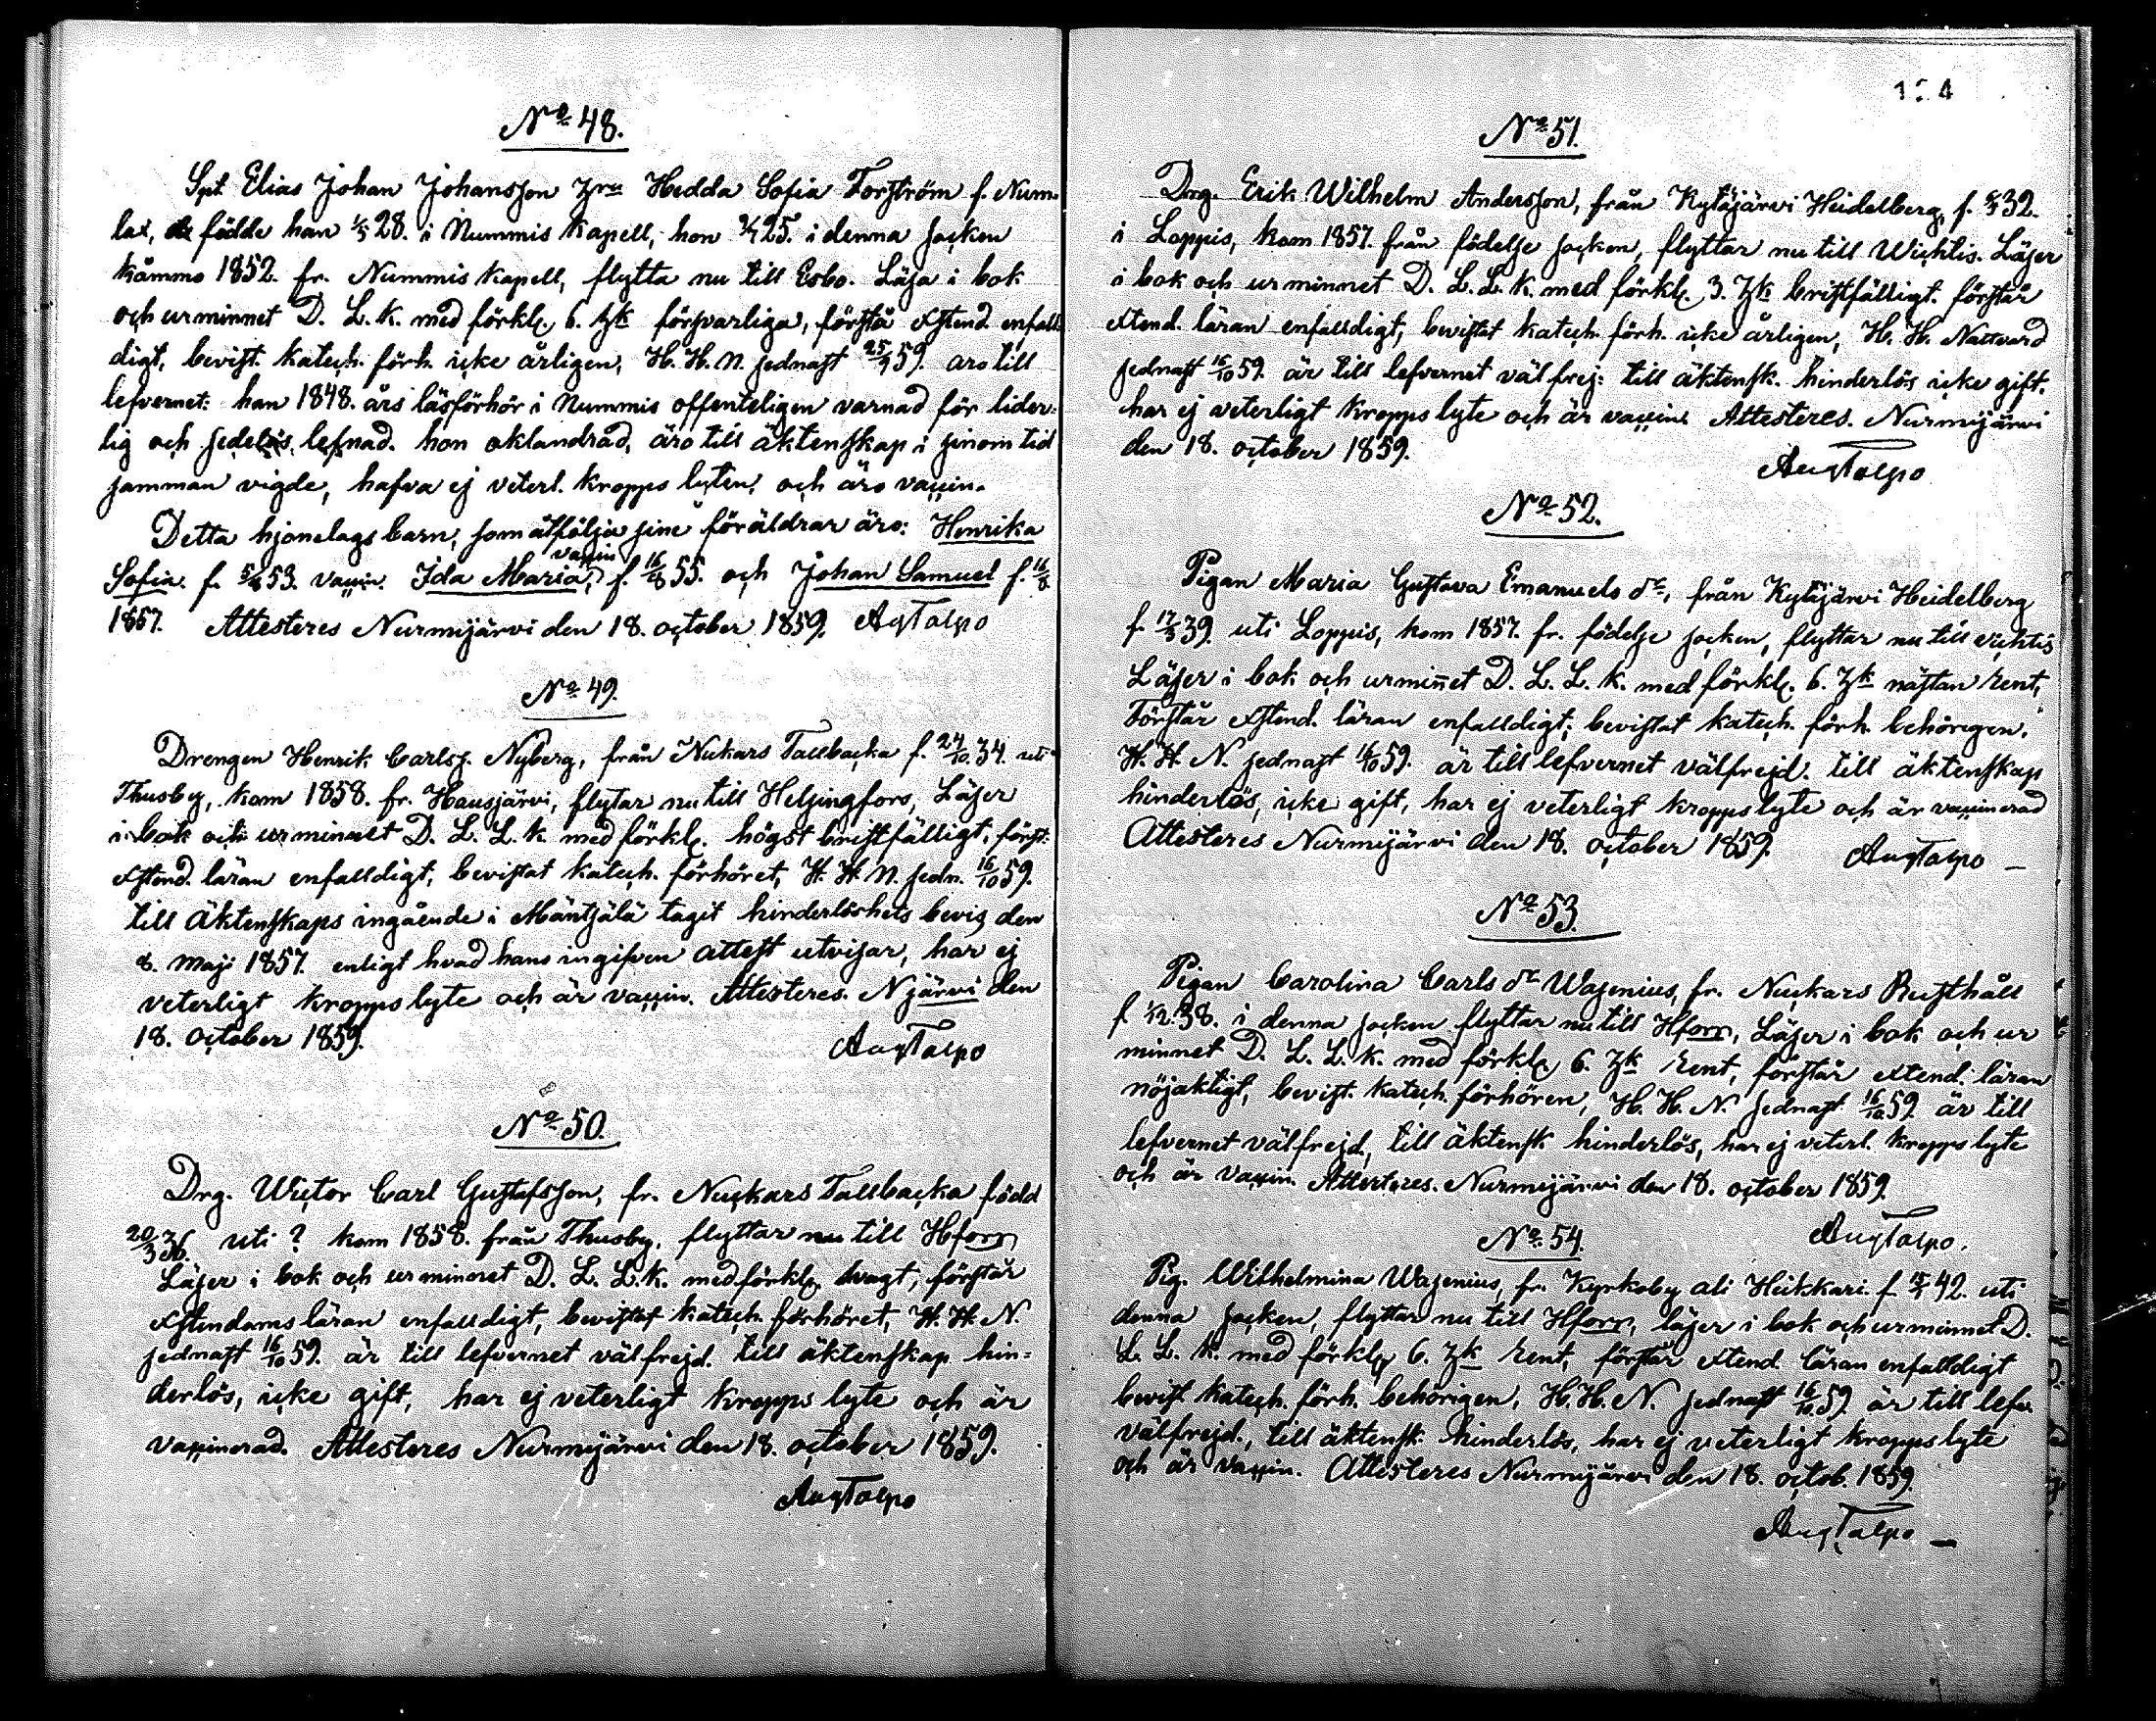 No 48.
Spt. Elias Johan Johansson Hedda Sofia Forström f. Num-
lax, födde han 1/5 28. i Nummis Kapell, hon 25. i denna socken
kommo 1852. fr. Nummis kapell, flytta nu till Esbo. Läsa i bok
och ur minnet D. L. K. med förklg. 6. försvarliga, förstå Xstend. enfall
digt, bevist. katech. förh. icke årligen, H. H. N. sednast 25/4 59. äro till
lefvernet: han 1848. års läsförhör i Nummis offenteligen varnad för lider-
lig och sedelös lefnad. hon oklandrad, äro till äktenskap i sinom tid
samman vigde, hafva ej veterl. kropps lyten, och äro vaccin.
Detta hjonelags barn, som åtfölja sine föräldrar äro: Henrika
vaccin
Sofia f. 53. vaccin. Ida Maria, f. 55. och Johan Samuel f. 16/8
1857. Attesteres Nurmijärvi den 18. october 1859. Aug Talpo
No 49.
Drengen Henrik Carlss. Nyberg, från Nukars Tallbacka f. 24/10 34. uti
Thusby, kom 1858. fr. Hausjärvi, flytar nu till Helsingfors, Läser
i bok och ur minnet D. L. L. K. med förklg. högst bristfälligt, först.
Xstend. läran enfalldigt, bevistat katech. förhöret, H. H. N. sedn. 16/10 59.
till äktenskaps ingående i Mäntsälä tagit hinderlöshets bevis den
8. Maji 1857. enligt hvad hans ingifven attest utvisar, har ej
veterligt kropps lyte och är vaccin. Attesteres. Njärvi den
18. october 1859. Aug Talpo
No 50.
Drg. Wictor Carl Gustafsson, fr. Nuckars Tallbacka född
20/3 36. uti ? kom 1858. från Thusby, flyttar nu till Hforss
Läser i bok och ur minnet D. L. L. K. med förklg. svagt, förstår
Xstendoms läran enfalldigt, bevistat katech. förhöret, H. H. N.
sednast 16/10 59. är till lefvernet välfrejd. till äktenskap hin-
derlös, icke gift, har ej veterligt kropps lyte och är
vaccinerad. Attesteres Nurmijärvi den 18. october 1859.
Aug Talpo
No 51.
Drg. Erik Wilhelm Andersson, från Kytäjärvi Heidelberg, f. 32.
i Loppis, kom 1857. från födelse socken, flyttar nu till Wichtis. Läser
i bok och ur minnet D. L. L. K. med förklg. 3. bristfälligt. förstår
Xtend. läran enfalldigt, bevistat katech. förh. icke årligen, H. H. Nattvard
sednast 16/10 59. är till lefvernet väl frej: till äktensk. hinderlös icke gift.
har ej veterligt kropps lyte och är vaccin. Attesteres. Nurmijärvi
den 18. october 1859.
Aug Talpo
No 52.
Pigan Maria Gustava Emanuels dr, från Kytäjärvi Heidelberg
f. 39. uti Loppis, kom 1857. fr. födelse socken, flyttar nu till Wichtis
Läser i bok och ur minnet D. L. L. K. med förklg. 6. nästan rent,
Förstår Xstend. läran enfalldigt, bevistat katech. förh. behörigen.
H. H. N. sednast 16/10 59. är till lefvernet välfrejd. till äktenskap
hinderlös, icke gift, har ej veterligt kropps lyte och är vaccinerad
Attesteres Nurmijärvi den 18. october 1859. Aug Talpo
No 53.
Pigan Carolina Carls dr Wasenius, fr. Nuckars Rusthåll
f. 1/12 38. i denna socken flyttar nu till Hforss, Läser i bok och ur
minnet D. L. L. K. med förklg. 6. rent, förstår Xtend. läran
nöjaktigt, bevist. katech. förhören, H. H. N. sednast 16/10 59. är till
lefvernet välfrejd, till äktensk hinderlös, har ej veterl. kropps lyte
och är vaccin. Attesteres. Nurmijärvi den 18. october 1859.
Aug Talpo.
No 54.
Pig. Wilhelmina Wasenius, fr. Kyrkoby ali Heikkari f. 42. uti
denna socken, flyttar nu till Hforss, läser i bok och ur minnet D.
L. L. K. med förklg 6. rent, förstår Xtend. läran enfalldigt
bevist. katech. förh. behörigen, H. H. N. sednast 16/10 59. är till lefv.
välfrejd., till äktensk. hinderlös, har ej veterligt kropps lyte
och är vaccin. Attesteres Nurmijärvi den 18. octob. 1859.
Aug Talpo